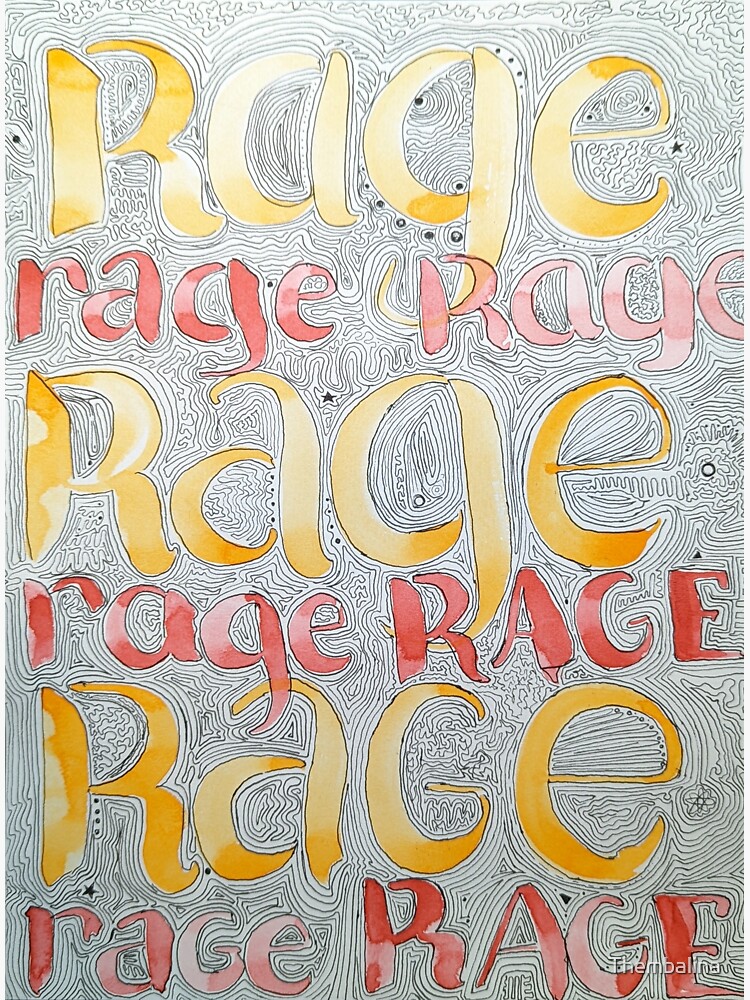 Rage
rage Rage
Rage
rage RAGE
RaGe
raGe RAGE
Thembalina